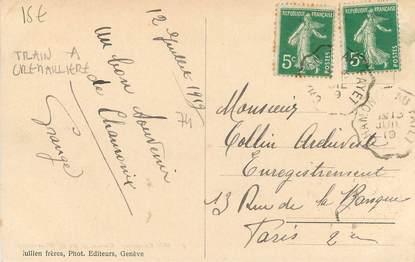 15€
TRAIN A
CREMAILLERE
12 Juillet 1919
Un bon souvenir
de Chamonix
Grange
74
RÉPUBLIQUE FRANÇAISE
5c
POSTES
RÉPUBLIQUE FRANÇAISE
5c
POSTES
Monsieur
Collin Archiviste
Enregistrement
13 Rue de la Banque
Paris 2e
Jullien frères, Phot. Editeurs, Genève